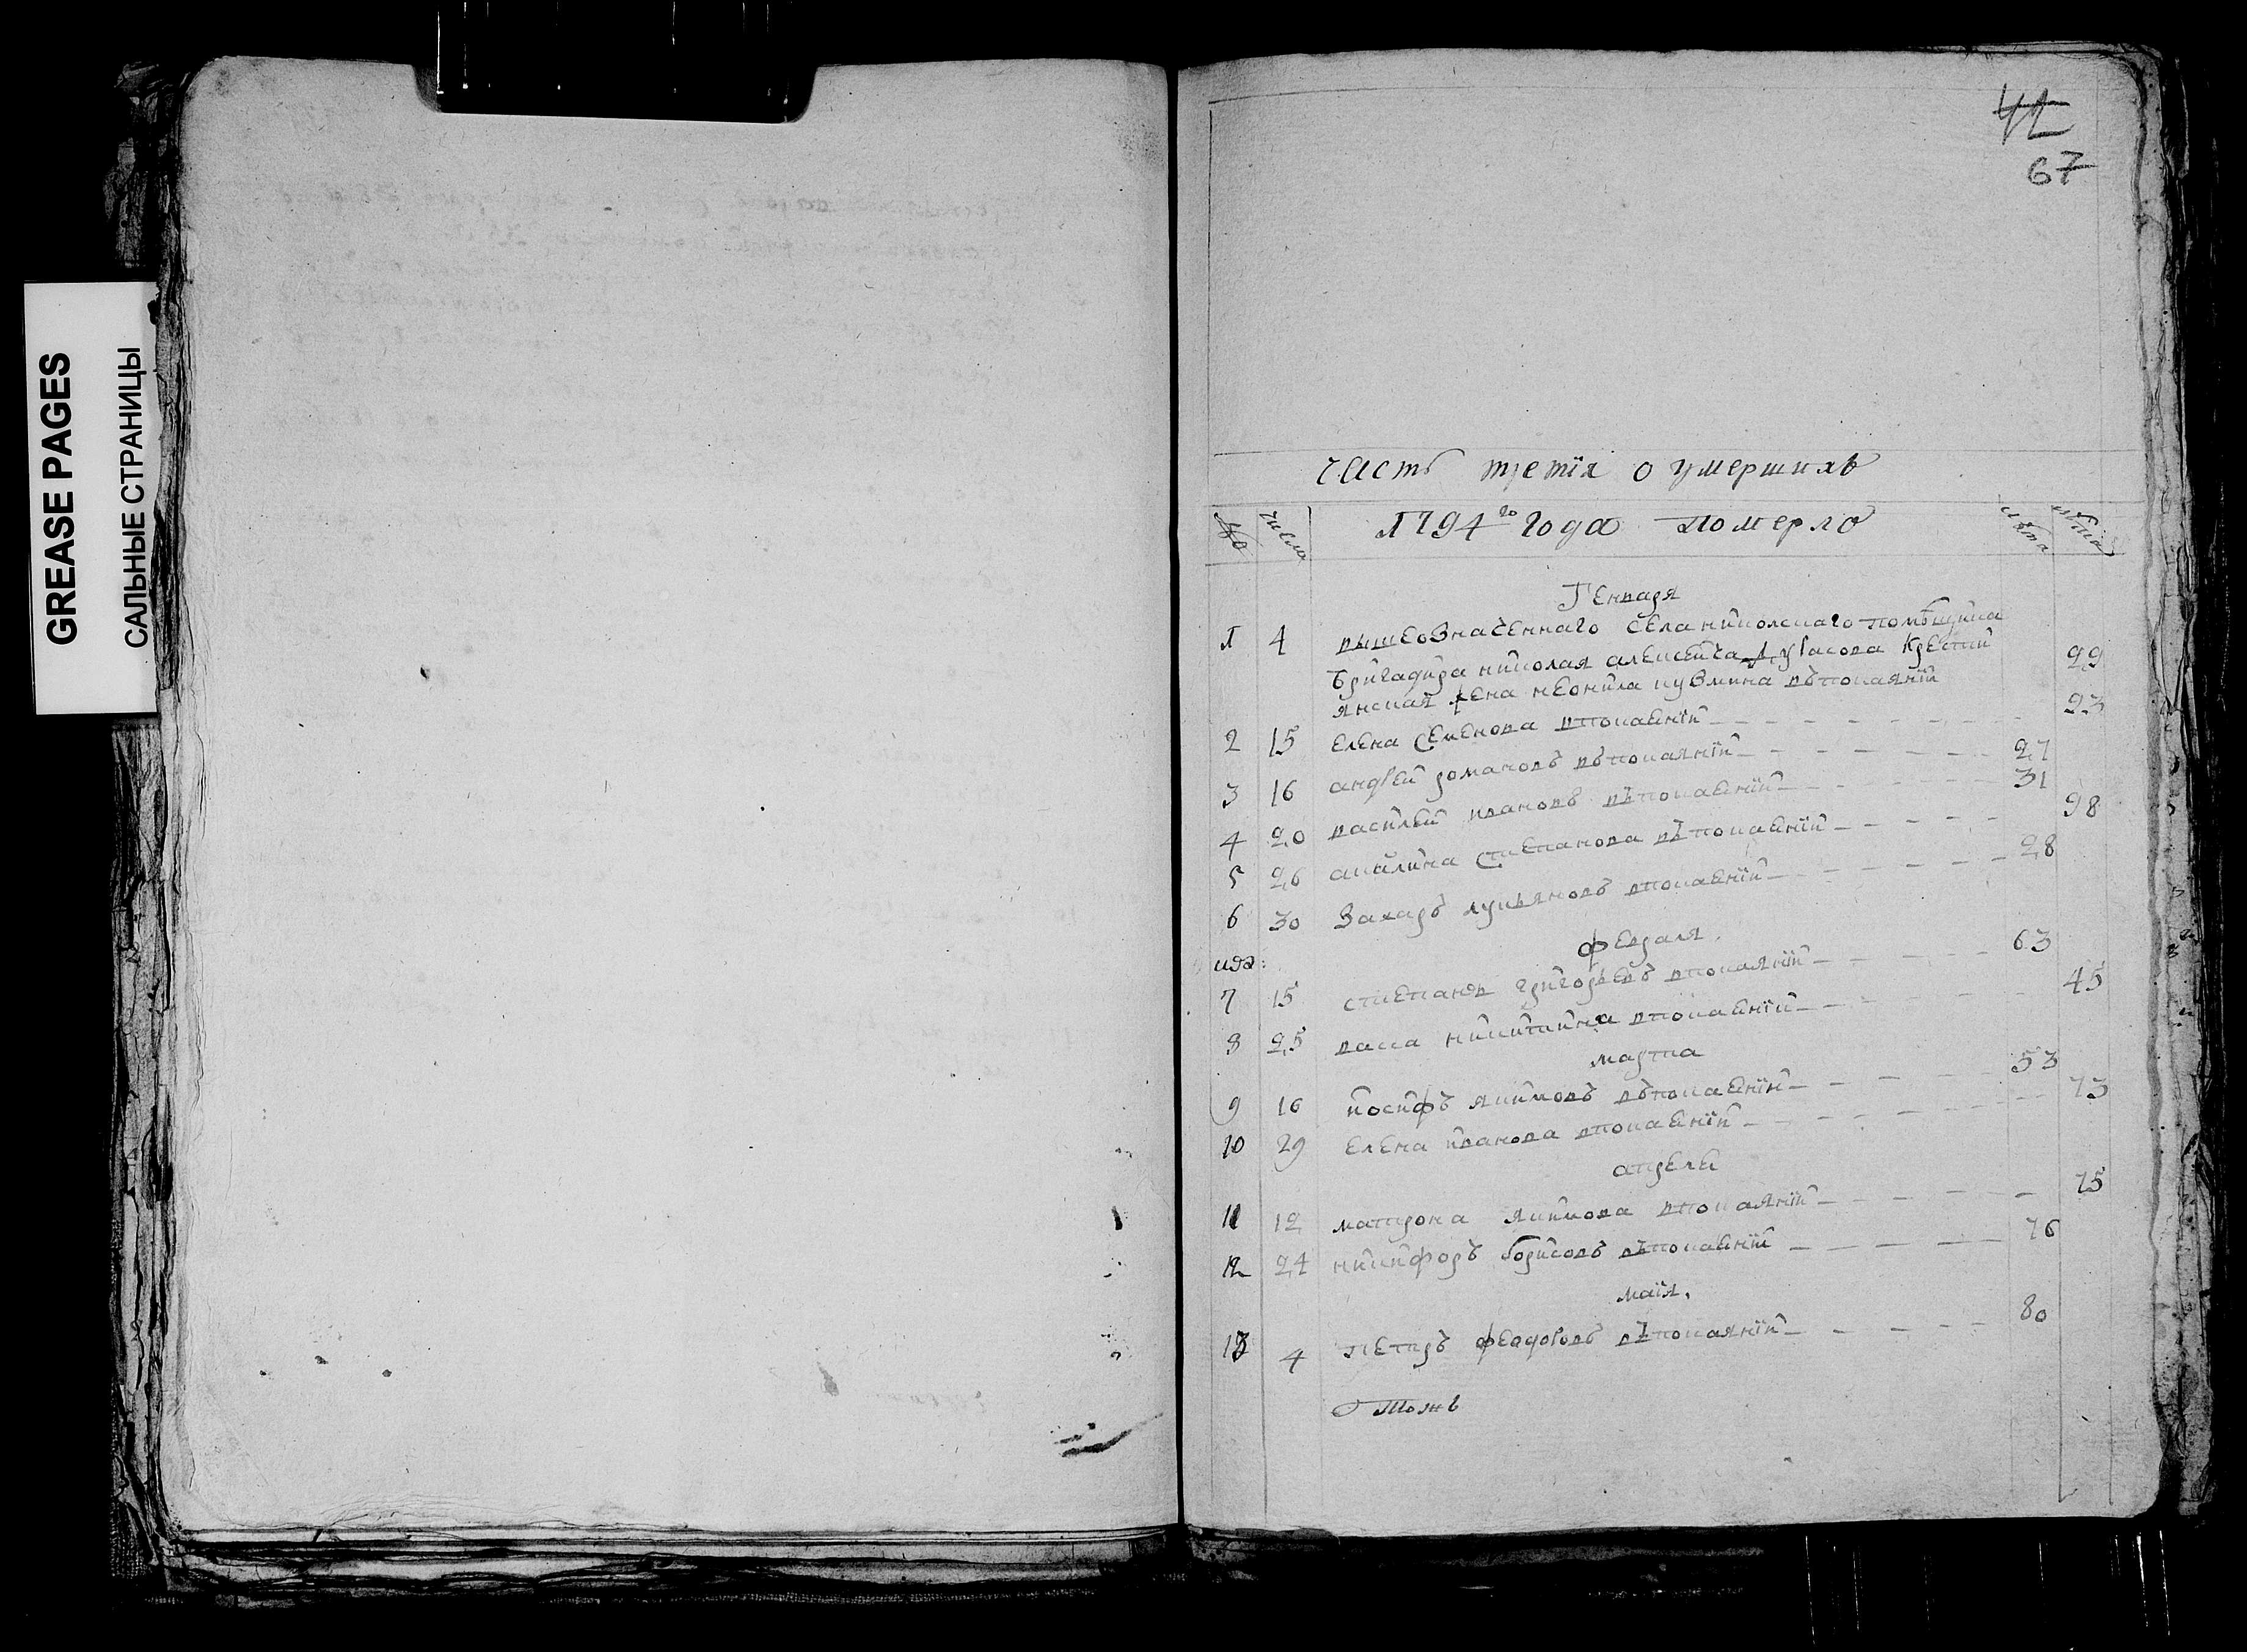 GREASE PAGES
САЛЬНЫЕ СТРАНИЦЫ
41
67
часть третїя о умершихъ
числа 1794го года померло лѣта лѣта
Генваря
1 4 вышеозначеннаго села никольскаго помѣщика
бригадира николая алексеича крестьи
янская жена неонила кузмина въпокаянїи 29
2 15 елена семенова впокаянїи 23
3 16 андрей романовъ въпокаянїи 27
4 20 василей ивановъ въпокаянїи 31
5 26 акилина степанова въпокаянїи 98
6 30 захаръ лукьяновъ впокаянїи 28
февраля
7 15 степанъ григорьевъ впокаянїи 63
8 25 васса никитина впокаянїи 45
марта
9 16 иосифъ якимовъ въпокаянїи 53
10 29 елена иванова впокаянїи 73
апреля
11 12 матрона якимова впокаянїи 75
12 24 никифоръ борисовъ въпокаянїи 76
маїя
13 4 петръ феодоровъ въпокаянїи 80